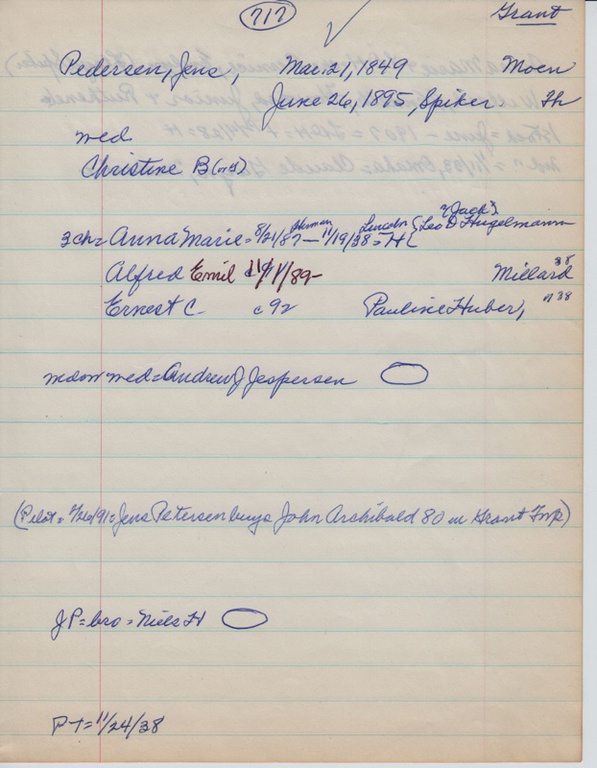 717
Grant
Pedersen, Jens, Mar. 21, 1849 Moen
June 26, 1895, Spiker Th
wed
Christine B (or H)
"Jack"
3 ch = Anna Marie = 8/21/87 Herman — 11/19/38 = Lincoln H { Leo D Hugelmann
Alfred Emil d 11/11/89- Millard 38
Ernest C c 92 Pauline Huber, n 38
widow wed = Andrew J Jespersen
(Pilot = 2/26/91 = Jens Petersen buys John Archibald 80 in Grant Twp)
J P = bro = Niels H
P T = 11/24/38